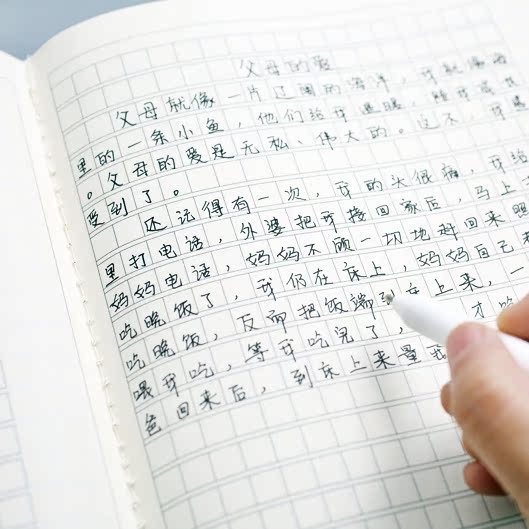 父母的爱
父母就像一片辽阔的海洋，我就像海
里的一条小鱼，他们给我温暖，陪我成长
。父母的爱是无私、伟大的。这不，我
受到了。
还记得有一次，我的头很痛，我给
里打电话，外婆把我接回家后，马上
妈妈电话，妈妈不顾一切地赶回来照
吃晚饭了，我仍在床上，妈妈自己
吃晚饭，反而把饭端到床上来，一
喂我吃，等我吃完了，才吃
爸回来后，到床上来量我